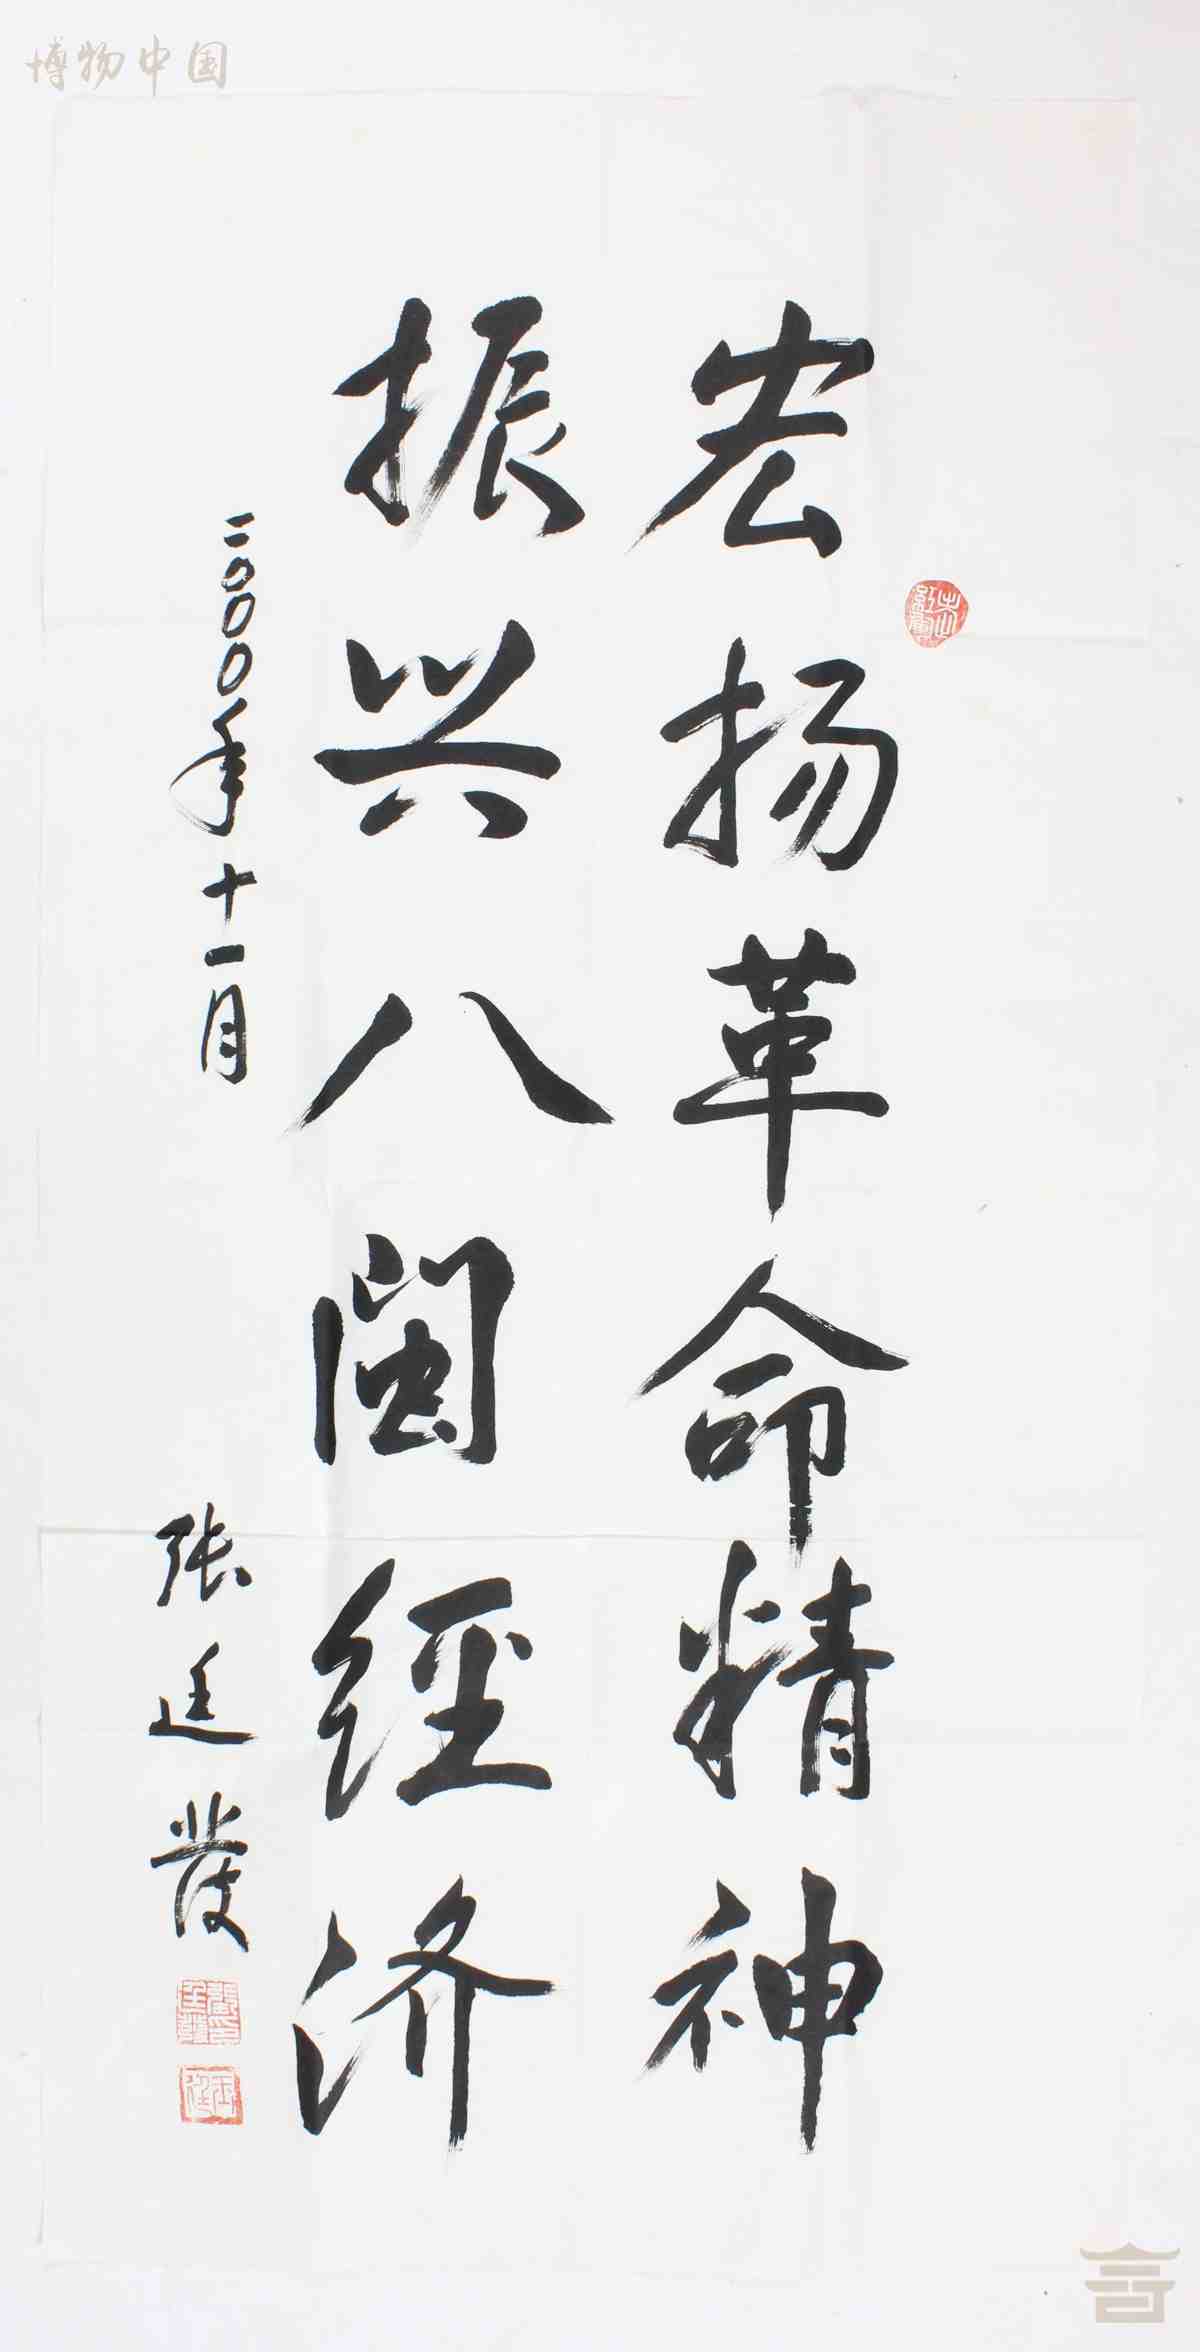 博物中国
宏扬革命精神
振兴八闽经济
二〇〇〇年十一月
张廷发